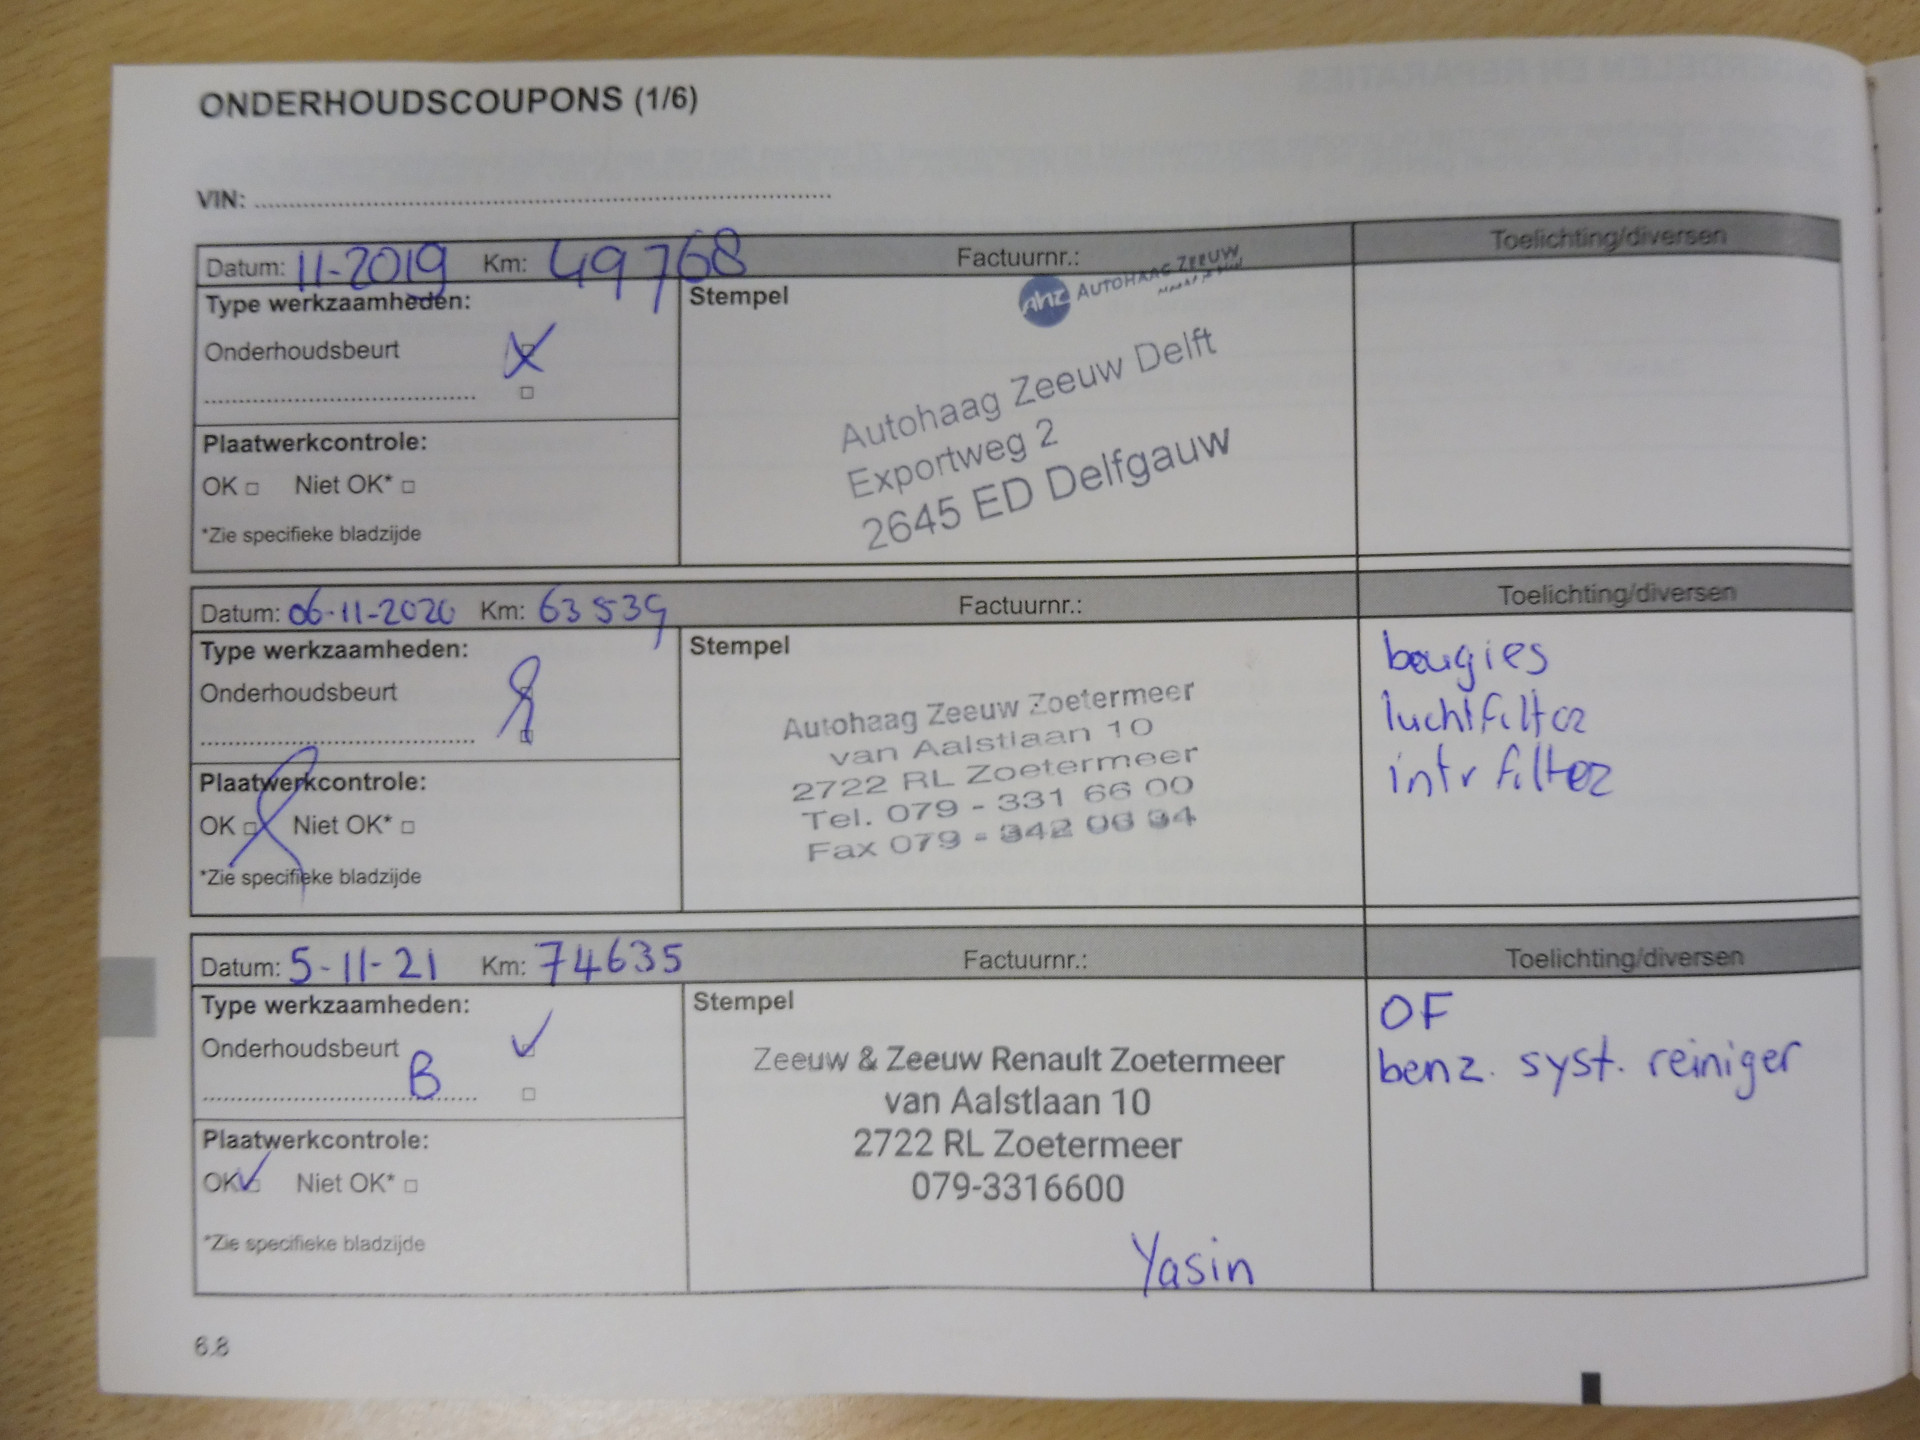 ONDERHOUDSCOUPONS (1/6)
VIN:
Datum: 11-2019 Km: 49768 Factuurnr.: Toelichting/diversen
Type werkzaamheden:
Onderhoudsbeurt
Plaatwerkcontrole:
OK □ Niet OK* □
*Zie specifieke bladzijde
Stempel
ahz AUTOHAAG ZEEUW
Autohaag Zeeuw Delft
Exportweg 2
2645 ED Delfgauw
Datum: 06-11-2020 Km: 63539 Factuurnr.: Toelichting/diversen
Type werkzaamheden:
Onderhoudsbeurt
Plaatwerkcontrole:
OK □ Niet OK* □
*Zie specifieke bladzijde
Stempel
Autohaag Zeeuw Zoetermeer
van Aalstlaan 10
2722 RL Zoetermeer
Tel. 079 - 331 66 00
Fax 079 - 342 06 34
bougies
luchtfilter
intr filter
Datum: 5-11-21 Km: 74635 Factuurnr.: Toelichting/diversen
Type werkzaamheden:
Onderhoudsbeurt
B
Plaatwerkcontrole:
OK □ Niet OK* □
*Zie specifieke bladzijde
Stempel
Zeeuw & Zeeuw Renault Zoetermeer
van Aalstlaan 10
2722 RL Zoetermeer
079-3316600
Yasin
OF
benz. syst. reiniger
6.8